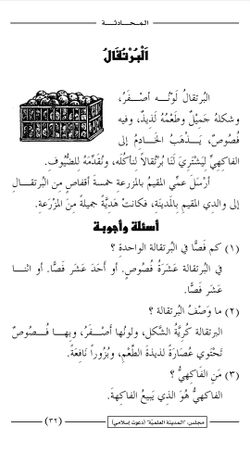 المحادثة
اَلْبُرْتُقَالُ
البُرتقالُ لَوْنُه أَصْفَرُ،
وشكلُه جَمِيْلٌ وطَعْمُه لَذِيذٌ، وفيه
فُصُوْصٌ، يَذْهَبُ الخَادِمُ إلى
الفاكهيِّ لِيَشْتَرِيَ لَنَا بُرْتُقالاً لنأكُلَه، ونُقَدِّمُهُ لِلضُّيُوفِ.
أَرْسَلَ عَمِّي المقيمُ بالمزرعةِ خمسةَ أقفاصٍ من البُرتقالِ
إلى والدي المقيم بالمَدينةِ، فكانتْ هَدِيَّةً جميلةً منَ المَزْرَعةِ.
أسئلة وأجوبة
(١) كم فَصًّا في البُرتقالة الواحدةِ؟
في البُرتقالة عَشَرَةُ فُصُوْصٍ. أو أَحَدَ عَشَرَ فَصًّا. أو اثنا
عَشَرَ فَصًّا.
(٢) ما وَصْفُ البُرتقالةِ؟
البرتقالة كُرِيَّةُ الشَّكْلِ، ولونُها أَصْفَرُ، وبها فُصُوصٌ
تَحْتَوِي عُصَارَةً لذيذةَ الطَّعْمِ، وبُزُوراً نَافِعَةً.
(٣) مَنِ الفَاكِهِيُّ؟
الفاكِهيُّ هُوَ الذي يَبيعُ الفاكِهةَ.
مجلس: "المدينة العلمية" (دعوت إسلامي) (٣٢)